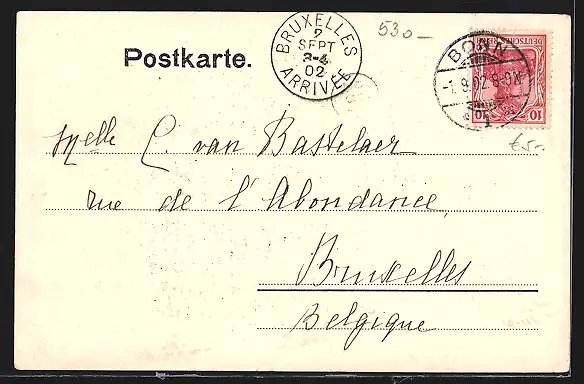 530–
BRUXELLES
2
SEPT
3-4
02
ARRIVÉE
BONN
-1.9.02.8-9N
*1
DEUTSCHES
10 10
Postkarte.
€5.-
Melle C. van Bastelaer
rue de l'Abondance
Bruxelles
Belgique